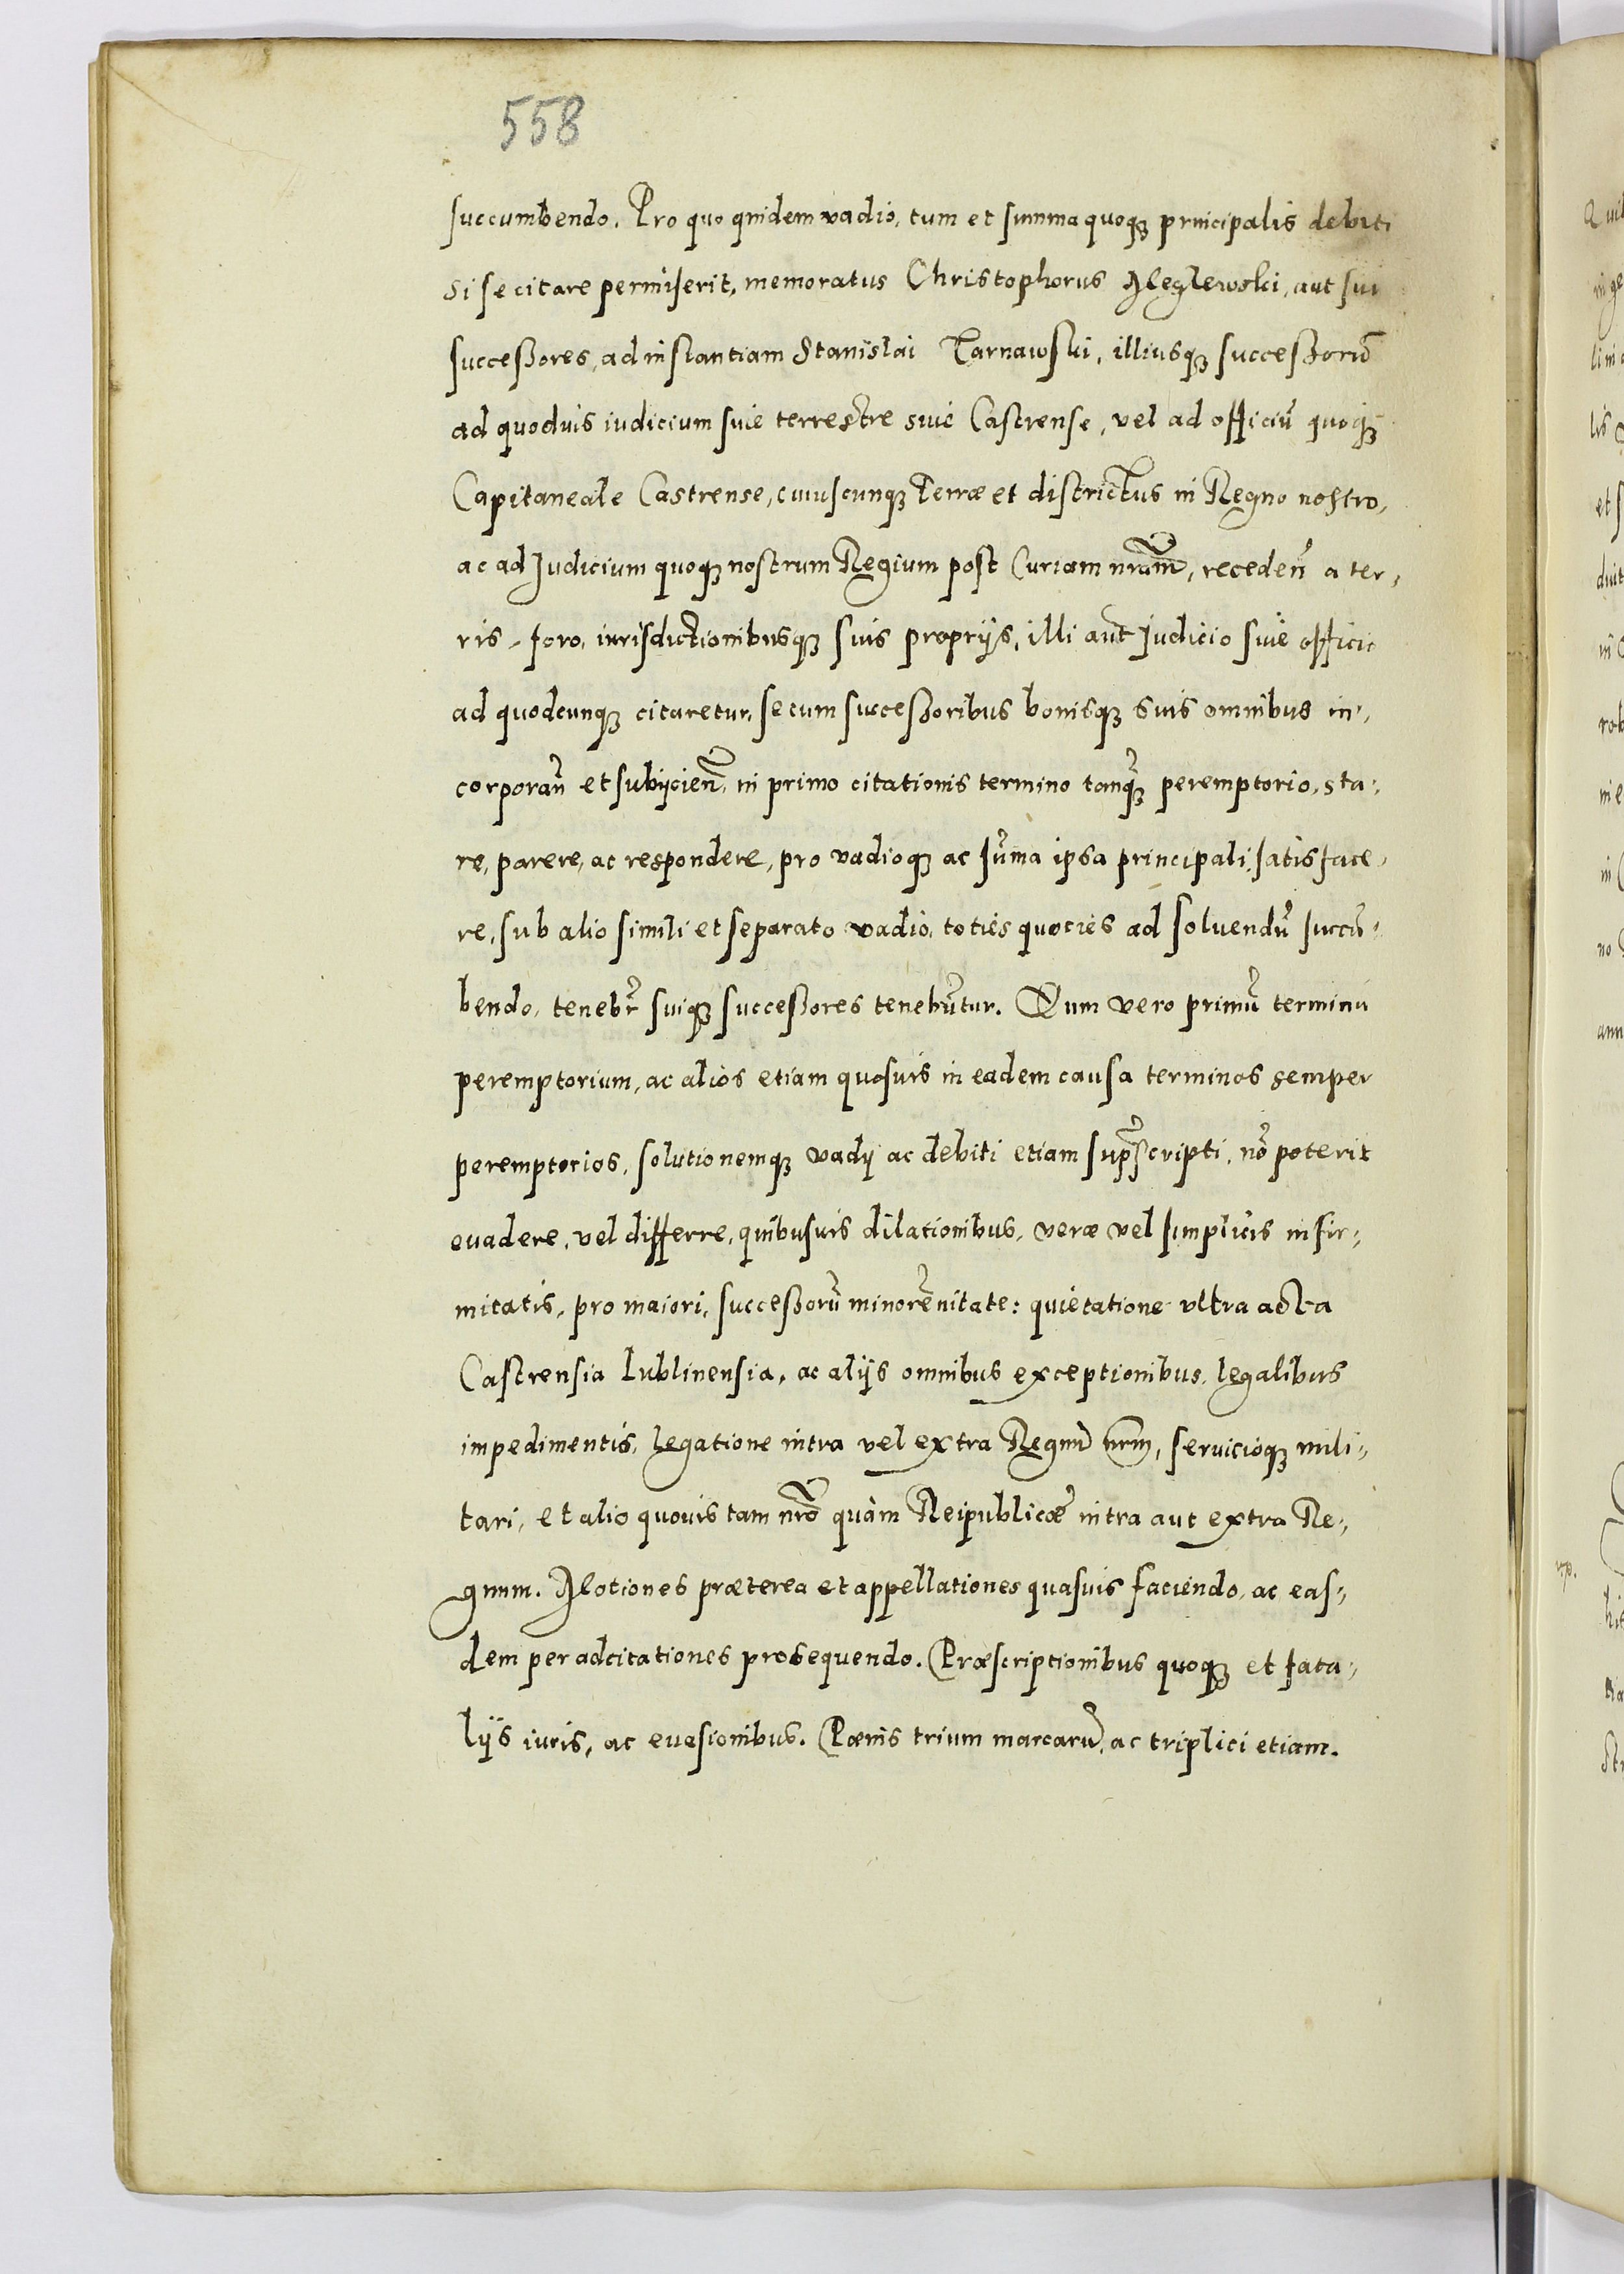 558
succumbendo. Pro quo quidem vadio, tum et summa quoqȝ principalis debiti
si se citare permiserit, memoratus Christophorus Męglewski, aut sui
successores, ad instantiam Stanislai Tarnawski, illiusqȝ successorū
ad quoduis iudicium siue terrestre siue Castrense, vel ad officiū quoqȝ
Capitaneale Castrense, cuiuscunqȝ Terræ et districtus in Regno nostro,
ac ad Judicium quoqȝ nostrum Regium post Curiam nr̃am, receden̄ a ter,
ris, foro, iurisdictionibusqȝ suis proprijs, illi aut Judicio siue officio
ad quodcunqȝ citaretur, se cum successoribus bonisqȝ suis omnibus in,
corporan̄ et subijcien̄, in primo citationis termino tanq̃ȝ peremptorio, sta,
re, parere, ac respondere, pro vadioqȝ ac sūma ipsa principali satisface,
re, sub alio simili et separato vadio, toties quocies ad soluendū succū,
bendo, teneb̃r suiqȝ successores tenebūtur. Cum vero primū terminū
peremptorium, ac alios etiam quosuis in eadem causa terminos semper
peremptorios, solutionemqȝ vadij ac debiti etiam sup̃scripti, nō poterit
euadere, vel differre, quibusuis dilationibus, veræ vel simplicis infir,
mitatis, pro maiori, successorū minorēnitate: quietatione vltra acta
Castrensia Lublinensia, ac alijs omnibus exceptionibus, legalibus
impedimentis, legatione intra vel extra Regnū nr̃m, seruicioqȝ mili,
tari, et alio quouis tam nr̃o quàm Reipublicæ intra aut extra Re,
gnum. Motiones præterea et appellationes quasuis faciendo, ac eas,
dem per adcitationes prosequendo. Præscriptionibus quoqȝ et fata,
lijs iuris, ac euasionibus. Pœnis trium marcarū, ac triplici etiam.